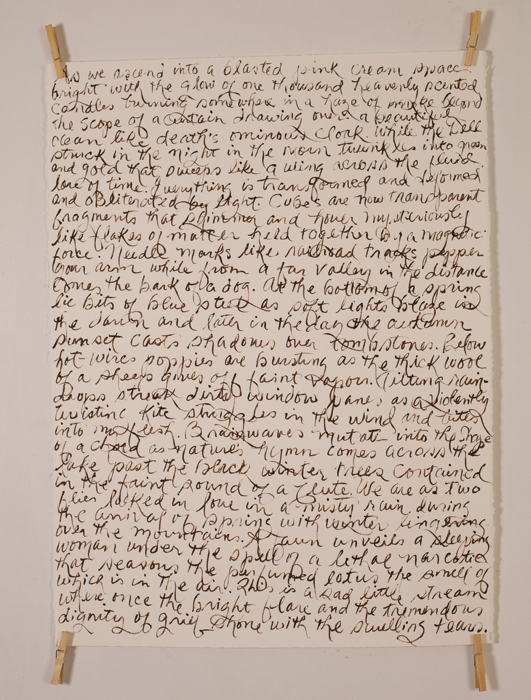 As we ascend into a blasted pink cream space
bright with the glow of one thousand heavenly scented
candles burning somewhere in a haze of smoke beyond
the scope of a curtain drawing over a beautiful
clean like death's ominous cloak. While the bell
struck in the night in the worn twinkles into green
and gold that pieces like a wing across the fluid
love of time. Everything is transformed and reformed
and obliterated by light. Cubes are now transparent
fragments that shimmer and hover mysteriously
like flakes of matter held together by a magnetic
force. Needle marks like railroad tracks pepper
your arm while from a far valley in the distance
comes the bark of a dog. At the bottom of a spring
lie bits of blue steel as soft lights blaze in
the dawn and later in the day the autumn
sunset casts shadows over tombstones. Below
hot wires poppies are bursting as the thick wool
of a sheep gives off faint vapour. Tilting rain-
drops streak dirty window panes as a violently
twisting kite struggles in the wind and bites
into my flesh. Brainwaves mutate into the
of a chord as nature's hymn comes across the
lake past the black winter trees contained
in the faint sound of a flute. We are as two
flies locked in love in a rusty rain during
the arrival of spring with winter lingering
over the mountains. Dawn unveils a sleeping
woman under the spell of a lethal narcotic
that seasons the perfumed lotus the smell of
which is in the air. is a sad little stream
where once the bright flare and the tremendous
dignity of grief shone with the swelling tears.